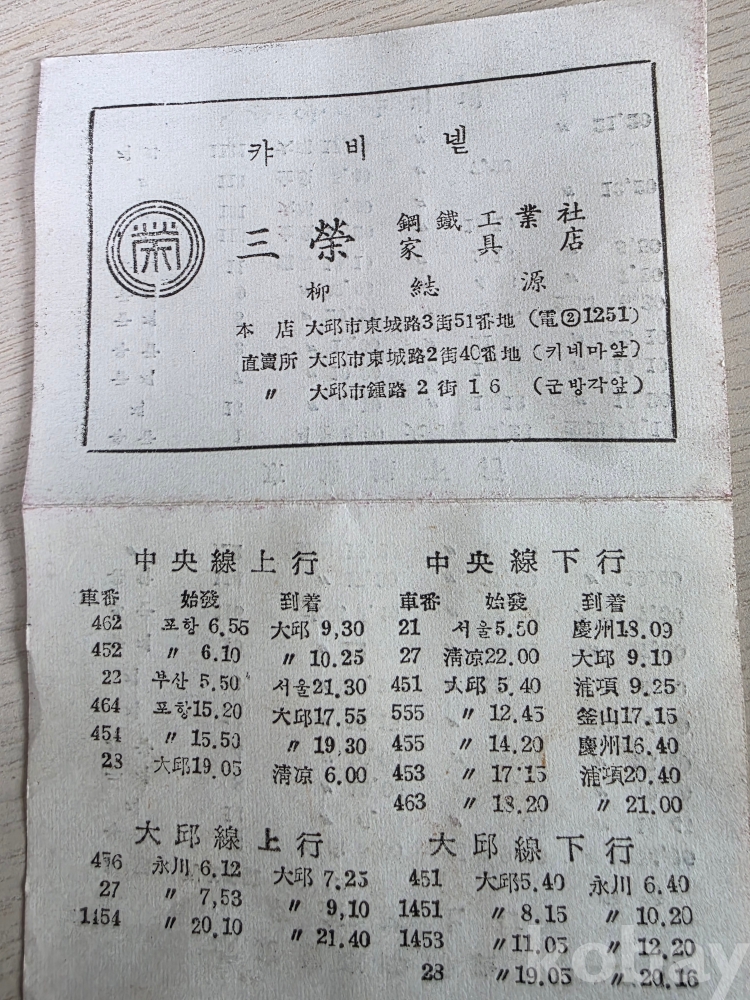 캬비넽
榮
三榮 鋼鐵工業社
家具店
柳 源
本店 大邱市東城路3街51番地 (電②1251)
直賣所 大邱市東城路2街40番地 (키네마앞)
〃 大邱市鍾路2街16 (군방각앞)
中央線上行
車番 始發 到着
462 포항 6.55 大邱 9,30
452 〃 6.10 〃 10.25
22 부산 5.50 서울21.30
464 포항15.20 大邱17.55
454 〃 15.50 〃 19,30
28 大邱19.05 淸凉 6.00
中央線下行
車番 始發 到着
21 서울5.50 慶州18.09
27 淸凉22.00 大邱 9.10
451 大邱 5.40 浦項 9.25
555 〃 12.45 釜山17.15
455 〃 14.20 慶州16.40
453 〃 17.15 浦項20.40
463 〃 18.20 〃 21.00
大邱線上行
456 永川 6.12 大邱 7.25
27 〃 7,53 〃 9,10
1454 〃 20.10 〃 21.40
大邱線下行
451 大邱5.40 永川 6.40
1451 〃 8.15 〃 10.20
1453 〃11.05 〃 12.20
28 〃19.05 〃 20.16
kobay